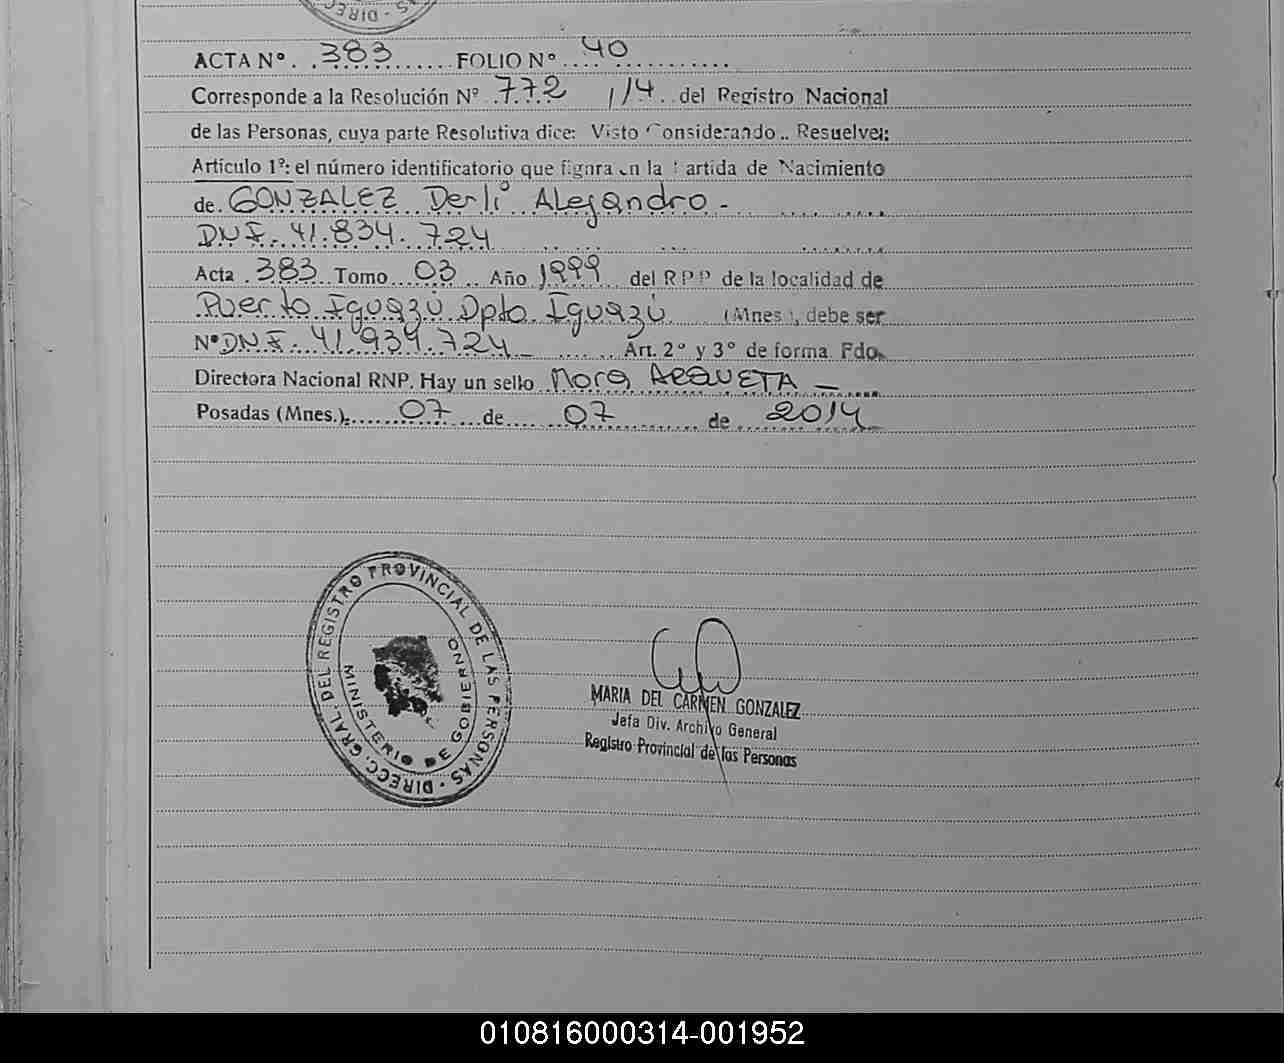 DIREC
ACTA Nº 383 FOLIO Nº 40
Corresponde a la Resolución Nº 772 1/4 del Registro Nacional
de las Personas, cuya parte Resolutiva dice: Visto Considerando.. Resuelve:
Artículo 1º: el número identificatorio que figura en la Partida de Nacimiento
de GONZALEZ Derli Alejandro -
DNI. 41.834.724
Acta 383 Tomo 03 Año 1999 del RPP de la localidad de
Puerto Iguazú Dpto Iguazú (Mnes), debe ser
Nº DNI. 41.934.724 - Art. 2º y 3º de forma. Fdo.
Directora Nacional RNP. Hay un sello Nora ARQUETA -
Posadas (Mnes.) 07 de 07 de 2014
DIRECC. GRAL. DEL REGISTRO PROVINCIAL DE LAS PERSONAS
MINISTERIO DE GOBIERNO
MARIA DEL CARMEN GONZALEZ
Jefa Div. Archivo General
Registro Provincial de las Personas
010816000314-001952